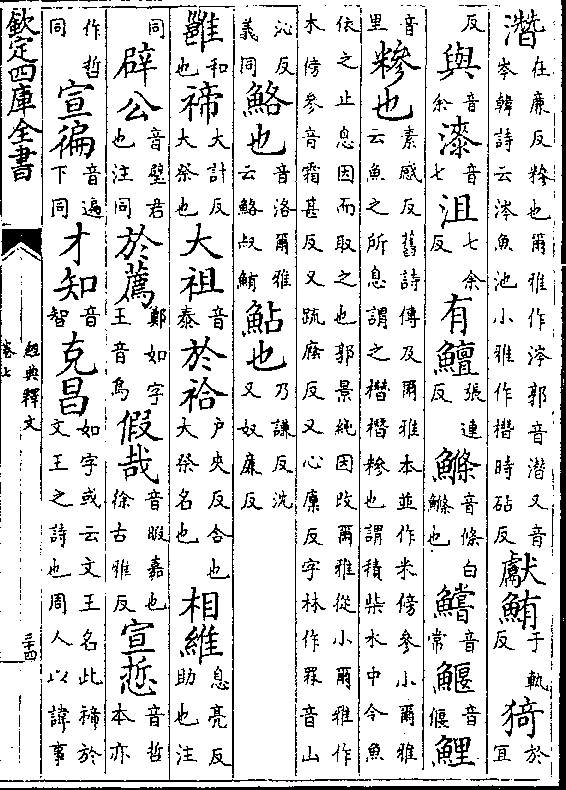 潛在廉反糝也爾雅作涔郭音潛又音岑韓詩云涔魚池小雅作橬時砧反獻鮪于軌反猗於宜
反與音余漆音七沮七余反有鱣張連反鰷音條白鰷也鱨音常鰋音偃鯉
音里糝也素感反舊詩傳及爾雅本並作米傍參小爾雅云魚之所息謂之橬橬糝也謂積柴水中令魚
依之止息因而取之也郭景純因改爾雅從小爾雅作木傍參音霜甚反又疏廕反又心廩反字林作罧音山
沁反義同鮥也音洛爾雅云鮥叔鮪鮎也乃謙反沈又奴廉反
雝和也禘大計反大祭也大祖音泰於祫户夾反合也大祭名也相維息亮反助也注
同辟公音璧君也注同於薦鄭如字王音烏假哉音暇嘉也徐古雅反宣悊音哲本亦
作哲同宣徧音遍下同才知音智克昌如字或云文王名此禘於文王之詩也周人以諱事
欽定四庫全書
經典釋文
卷七
三十四